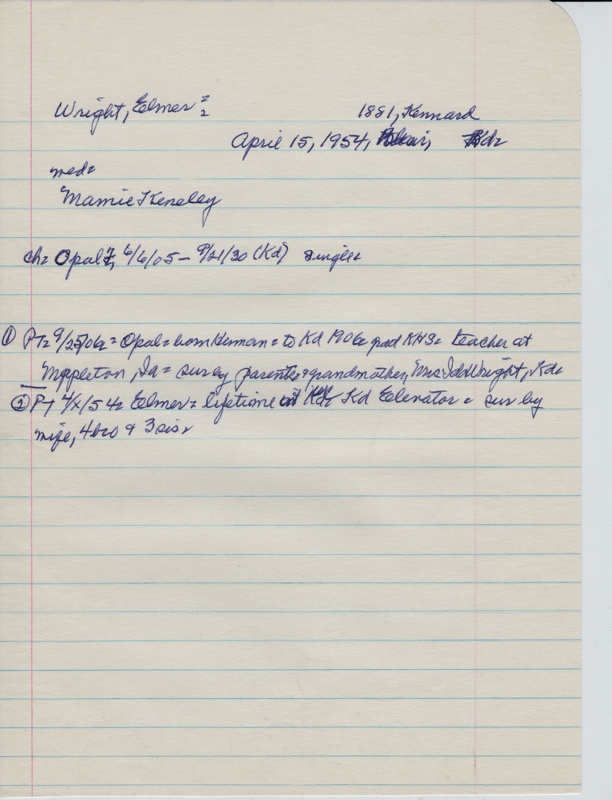 Wright, Elmer = 2 1881, Kennard
April 15, 1954, Blair, Kd=
med=
Mamie Keneley
ch= Opal I, 6/6/05 - 9/21/30 (Kd) single
① PT= 9/25/ Opal = born Herman = to Kd 1906 grad KHS= teacher at
Mappleton, Ia = sur by parents & grandmother, Mrs Ida Wright, Kd=
② PT 4/X/54= Elmer = lifetime Kd= Kd Elevator = sur by
wife, 4 bro & 3 sis